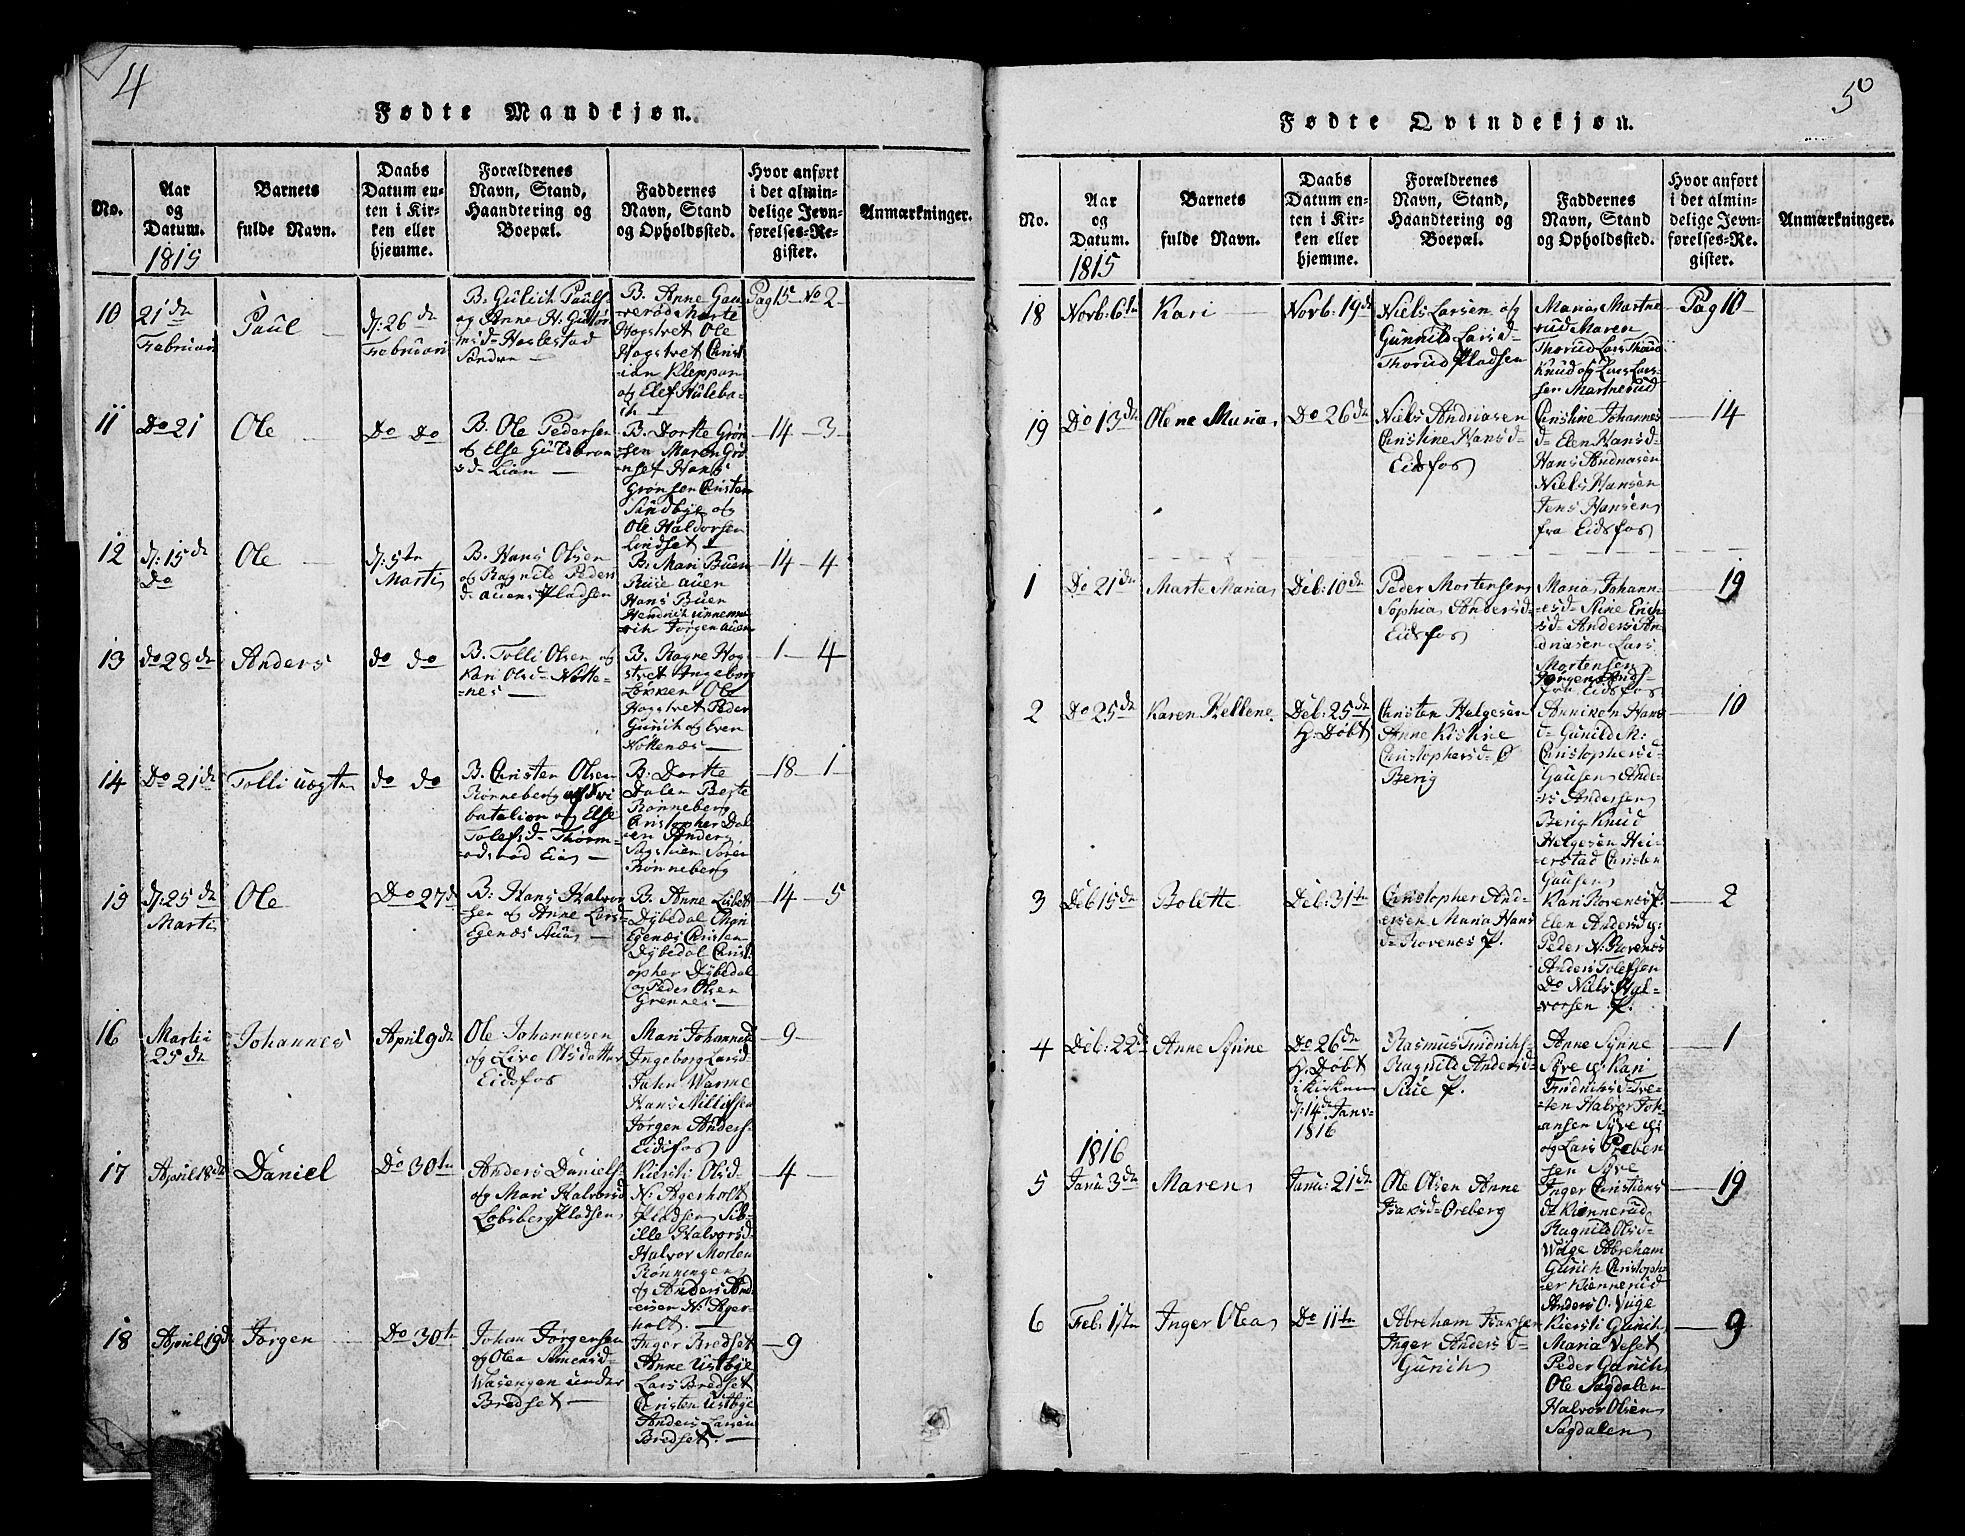 4
Fødte Mandkjøn.
No.
Aar
og
Datum.
1815
Barnets
fulde Navn.
Daabs
Datum en-
ten i Kir-
ken eller
hjemme.
Forældrenes
Navn, Stand,
Haandtering og
Boepæl.
Faddernes
Navn, Stand
og Opholdssted.
Hvor anført
i det almin-
delige Jevn-
førelses-Re-
gister.
Anmærkninger.
10
21de
Februari
Paul
d: 26de
Februari
B. Gulich Pauls-
og Anne H. Guttor
msd-
B. Anne Gau
Marte
Hogstvet Ole
Hogstvet Christ
ian Kleppan
og Elef Hüleba-
ch
Pag 15 No 2
11
Do 21
Ole
Do Do
B. Ole Pedersen
og Else Guldbran
sd- Lian
B. Dorthe Grøn-
sen Maren Grø
nset Hans
Grønsen Christen
Sandbye og
Ole Haldorsen
Lindset
14 - 3
12
d: 15de
Do
Ole
d: 5te
Martis
B. Hans Olsen
og Ragnild Peders
d- auens Pladsen
B. Mari Buen
Rüse auen
Hans Buen
Hendrich
Jørgen auen
14 - 4
13
do 28de
Anders
do do
B. Tolli Olsen og
Kari Olsd- Nøtte-
nes
B. Ragne Hog-
stvet Ingeborg
Løkken Ole
Hogstvet Peder
Gurich og Even
Nøttenæs
1 - 4
14
Do 21de
Do Do
B. Christen Olsen
Rønneberg
batalion og Else
Tolefsd- Thorm-
odsrød Eie
B. Dorthe
Dalen Berte
Rønneberg
Christopher Dal
en Anders
Sagstuen Søren
Rønneberg
18 - 1
15
d: 25de
Martis
Ole
Do 27de
B: Hans Halvor
sen og Anne Lars
d-
Egenæs Aua
B. Anne Lisbeth
Dybedal
Egenæs Christen
Dybedal Christ
opher Dybedal
og Peder Olsen
Grennes
14 - 5
16
Martii
25de
Johannes
April 9de
Ole Johannesen
og Live Olsdatter
Eidsfos
Mari Johannesd
Ingeborg Larsd-
John Warme
Hans Nillissen
Jørgen Anders-
Eidsfos
9
17
April 18de
Daniel
Do 30te
Anders Daniels-
og Mari Halvorsd
Løbsberg Pladsen
Kiersti Olsd-
N: Agerholt
Pladsen Sib-
ille Halvorsd-
Halvor Morten
Rønningen
og Anders And-
ersen N: Ager-
holt.
4
18
April 19de
Jørgen
Do 30te
Johan Jørgensen
og Olea Simensd-
Wasengen under
Bredset
Inger Bredset
Anne Ustbye
Lars Bredset
Christen Ustbye
Anders Larsen
Bredset.
9
5
Fødte Qvindekjøn.
No.
Aar
og
Datum.
1815
Barnets
fulde Navn.
Daabs
Datum en-
ten i Kir-
ken eller
hjemme.
Forældrenes
Navn, Stand,
Haandtering og
Boepæl.
Faddernes
Navn, Stand
og Opholdssted.
Hvor anført
i det almin-
delige Jevn-
førelses-Re-
gister.
Anmærkninger.
18
Novb: 6te
Kari
Novb: 19de
Niels Larsen og
Gunnild Larsd-
Thorud Pladsen
Maria Martne
rud Maren
Thorud Lars Thorud
Knud og Lars Lars-
sen Martnerud
Pag 10
19
Do 13de
Olene Maria
Do 26de
Niels Andriasen
Christine Hansd-
Eidsfos
Christine Johannes
d- Elen Hansd-
Hans Andriasen
Niels Hansen
Jens Hansen
fra Eidsfos
14
1
Do 21de
Marte Maria
Deb: 10de
Peder Mortensen
Sophia Andersd-
Eidsfos
Maria Johann-
esd- Stine Erich-
sd- Anders An-
driasen Lars
Mortensen
fra Eidsfos
19
2
Do 25de
Karen Hellene
Deb: 25de
H: Døbt
Christen Helgesen
Anne Kistine
Christophersd-
Berig
Anniken Hans
d- Gunild M:
Christophersd-
Gausen Ande-
rs Andersen
Berig Knud
Helgesen Hei-
erstad Christen
Gausen
10
3
Deb 15de
Bolette
Deb: 31te
Christopher And-
ersen Maria Hans
d- Rovenæs P.
Kari Rovenæs P.
Elen Andersd
Peder N. Rovenæs
Anders Tolefsen
Do Niels Hal-
vorsen P.
2
4
Deb: 22de
Anne Synne
Do 26de
H: Døbt
i Kirken
d: 14de Janu-
1816
Rasmus Fridrichs-
Ragnild Andersd-
Rüe P.
Anne Synne
Syve og Kari
Fridrichsd- Tve-
ten Halvor Joh-
ansen Syve
og Lars Preben
sen Syve
1
1816
5
Janu 3de
Maren
Janu: 21de
Ole Olsen Anne
Isaksd- Øreberg
Inger Christens
d- Kiønnerud
Ragnild Olsd-
Wüge Abreham
Gurich Christoph-
er Kiennerud
Anders O. Vüge
19
6
Feb: 1ste
Inger Olea
Do 11te
Abreham Isaksen
Inger Anders D-
Gurich
Kiersti Gurich
Maria Veset
Peder Gurich
Ole Sagdalen
Halvor Olsen
Sagdalen
9